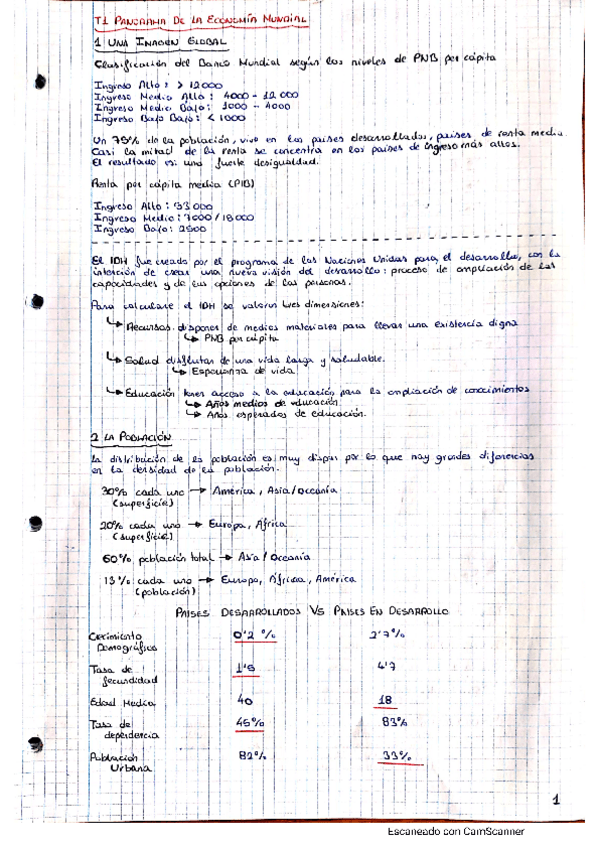 T1 PANORAMA DE LA ECONOMÍA MUNDIAL
1 UNA IMAGEN GLOBAL
Clasificación del Banco Mundial según los niveles de PNB per cápita
Ingreso Alto: > 12000
Ingreso Medio Alto: 4000 - 12000
Ingreso Medio Bajo: 1000 - 4000
Ingreso Bajo: < 1000
Un 75% de la población, vive en los países desarrollados, países de renta media.
Casi la mitad de la renta se concentra en los países de ingreso más altos.
El resultado es: una fuerte desigualdad.
Renta per cápita media (PIB)
Ingreso Alto: 33000
Ingreso Medio: 7000 / 18000
Ingreso Bajo: 2500
El IDH fue creado por el programa de las Naciones Unidas para el desarrollo, con la
intención de crear una nueva visión del desarrollo: proceso de ampliación de las
capacidades y de las opciones de las personas.
Para calcular el IDH se valoran tres dimensiones:
↳ Recursos disponer de medios materiales para llevar una existencia digna
↳ PNB per cápita
↳ Salud disfrutar de una vida larga y saludable.
↳ Esperanza de vida
↳ Educación tener acceso a la educación para la ampliación de conocimientos
↳ Años medios de educación
↳ Años esperados de educación.
2 LA POBLACIÓN
La distribución de la población es muy dispar por lo que hay grandes diferencias
en la densidad de la población.
30% cada uno → América, Asia/Oceanía
(superficie)
20% cada uno → Europa, África
(superficie)
60% población total → Asia / Oceanía
13% cada uno → Europa, África, América
(población)
PAISES DESARROLLADOS VS PAISES EN DESARROLLO
Crecimiento 0'2 % 2'7%
Demográfico
Tasa de 1'6 4'7
fecundidad
Edad Media 40 18
Tasa de 45% 83%
dependencia
Población 82% 33%
Urbana
1
Escaneado con CamScanner